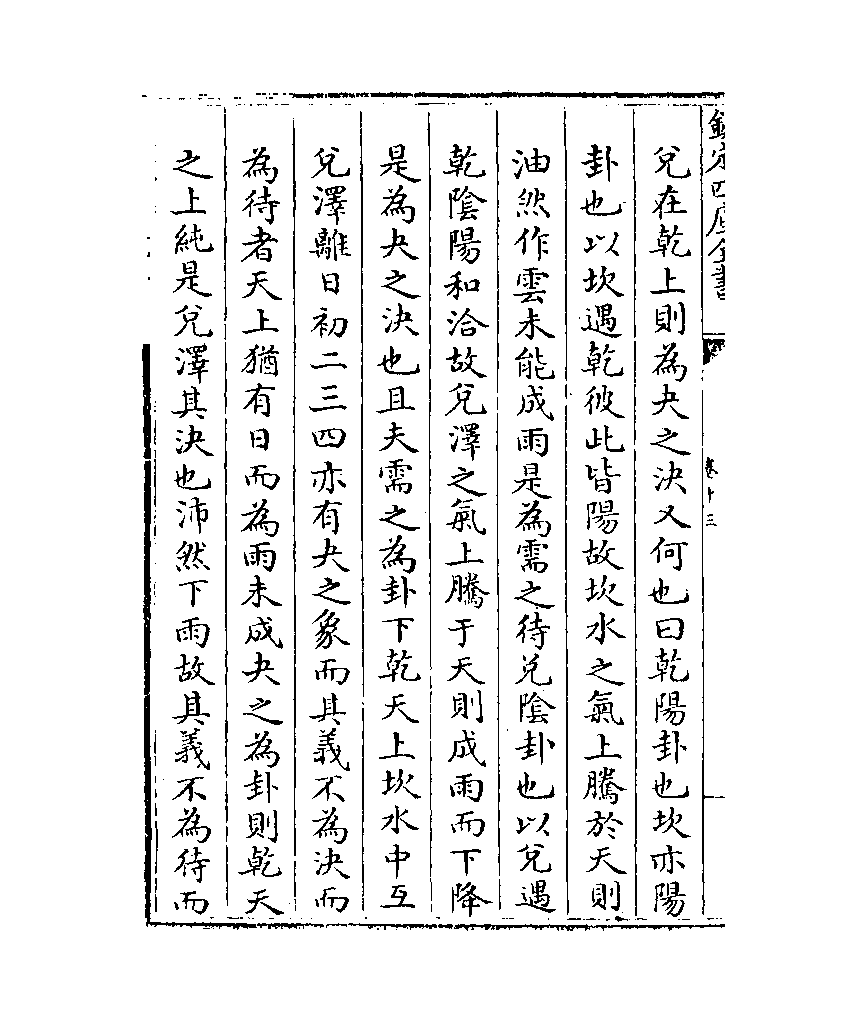 欽定四庫全書
卷十三
兌在乾上則為夬之決又何也曰乾陽卦也坎亦陽
卦也以坎遇乾彼此皆陽故坎水之氣上騰於天則
油然作雲未能成雨是為需之待兌陰卦也以兌遇
乾陰陽和洽故兌澤之氣上騰于天則成雨而下降
是為夬之決也且夫需之為卦下乾天上坎水中互
兌澤離日初二三四亦有夬之象而其義不為決而
為待者天上猶有日而為雨未成夬之為卦則乾天
之上純是兌澤其決也沛然下雨故其義不為待而